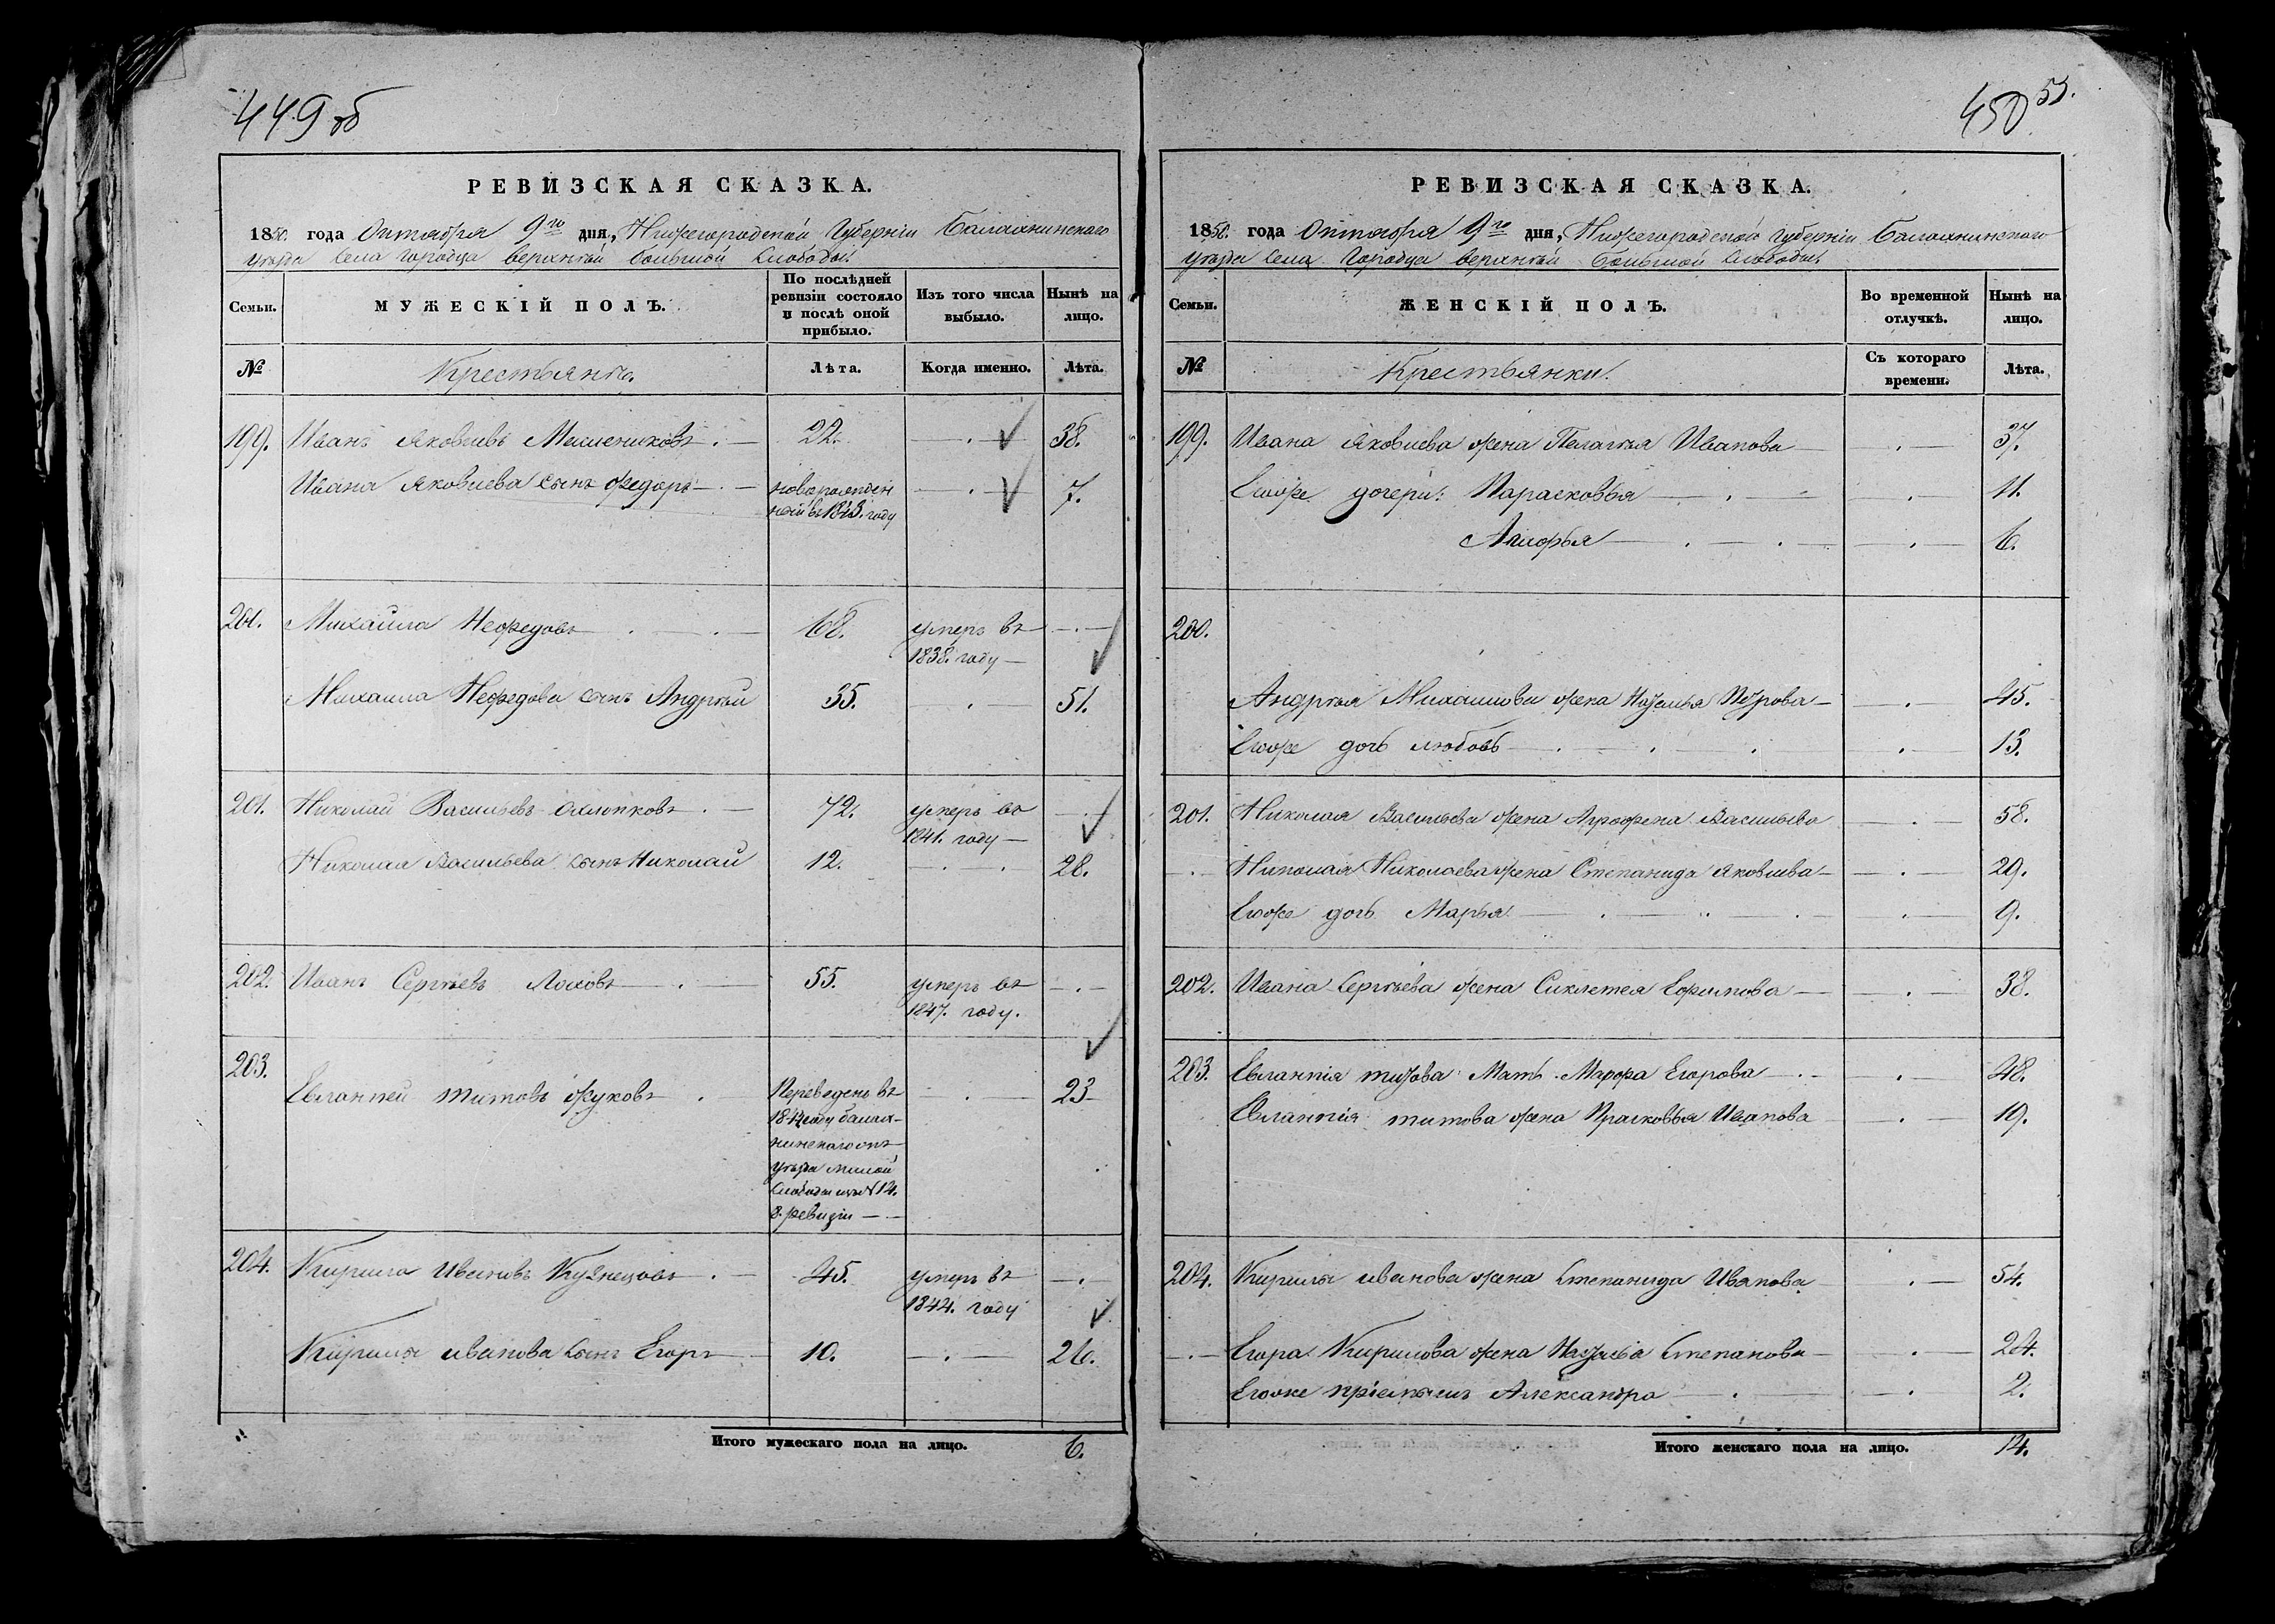 449 об
РЕВИЗСКАЯ СКАЗКА.
1850. года Октября 9го дня, Нижегородской Губерніи Балахнинскаго
уѣзда Села Городца верхней большой Слободы
Семьи.
МУЖЕСКІЙ ПОЛЪ.
По послѣдней ревизіи состояло и послѣ оной прибыло.
Изъ того числа выбыло.
Нынѣ на лицо.
№
Крестьяне.
Лѣта.
Когда именно.
Лѣта.
199. Иванъ Яковлевъ Маслениковъ 22. 38.
Ивана Яковлева сынъ Федоръ новорожден 7.
ной въ 1843. году
Михаила Нефедовъ 68. умеръ въ
1838. году
Михаила Нефедова сынъ Андрей 35. 51.
201. Николай Васильевъ Охлопковъ 72. умеръ въ
1841. году
Николая Васильева сынъ Николай 12. 28.
202. Иванъ Сергѣевъ Лоховъ 55. умеръ въ
1847. году.
203.
Евлантей титовъ Жуковъ Переведенъ въ 23
году балах-
нинскаго
уѣзда малой
Слободы изъ № 14.
8. ревизіи
204. Кирила Ивановъ Кузнецовъ 45. умеръ въ
1844. году
Кирилы иванова сынъ Егоръ 10. 26.
Итого мужескаго пола на лицо. 6.
450 55.
РЕВИЗСКАЯ СКАЗКА.
1850. года Октября 9го дня, Нижегородской Губерніи Балахнинскаго
уѣзда Села Городца верхней большой Слободы
Семьи.
ЖЕНСКІЙ ПОЛЪ.
Во временной отлучкѣ.
Нынѣ на лицо.
№
Крестьянки.
Съ котораго времени.
Лѣта.
199. Ивана Яковлева жена Пелагея Иванова 37.
Егоже дочери: Парасковья 11.
6.
200.
Андрея Михаилова жена Наталья Петрова 45.
Егоже дочь любовь 13.
201. Николая Васильева жена Аграфена Васильева 58.
Николая Николаева жена Степанида Яковлева 29.
Егоже дочь Марья 9.
202. Ивана Сергѣева жена Сиклетея Ефимова 38.
203. Евлантія титова Мать Марфа Егорова 48.
Евлантія титова жена Прасковья Иванова 19.
204. Кирилы иванова жена Степанида Иванова 54.
Егора Кирилова жена Наталья Степанова 24.
Егоже пріемышъ Александра 2.
Итого женскаго пола на лицо. 14.